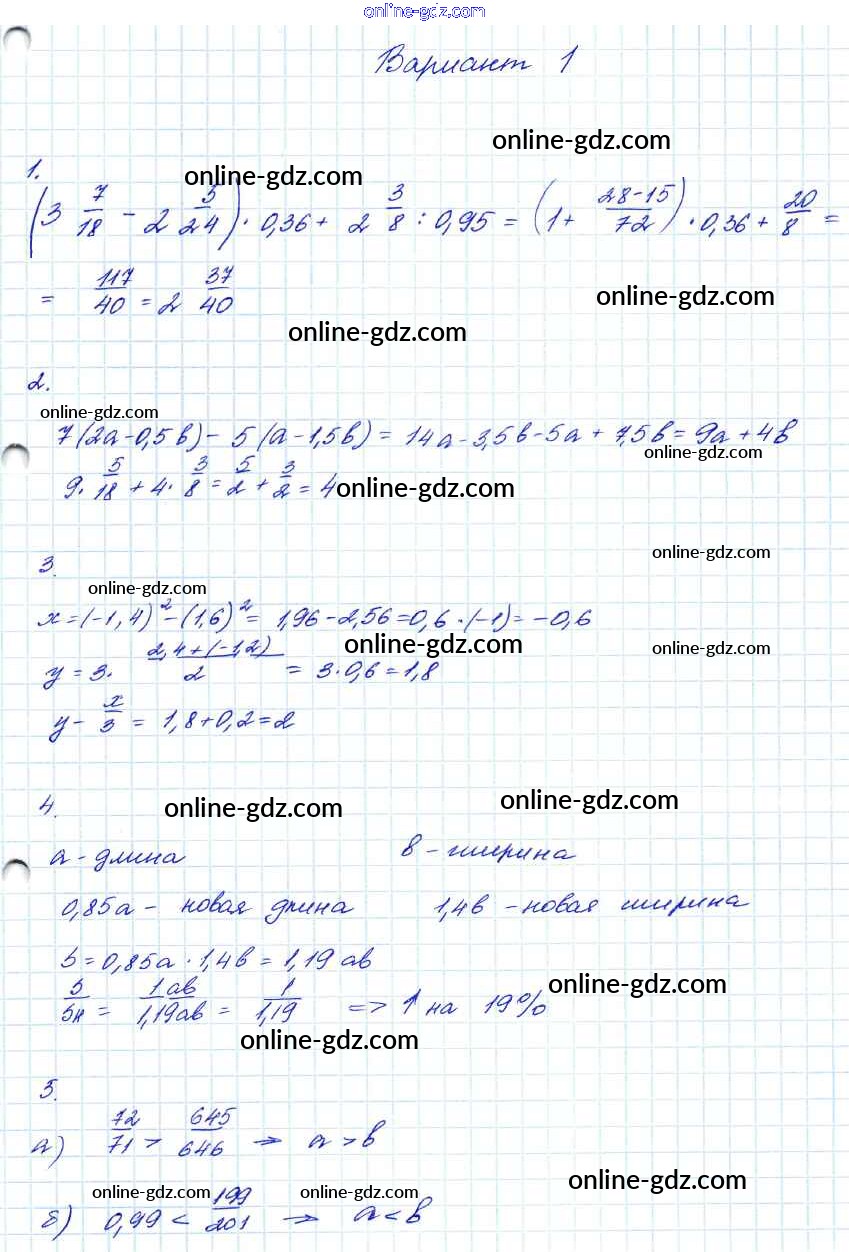 online-gdz.com
Вариант 1
online-gdz.com
1. online-gdz.com
(3 7/18 - 2 5/24) · 0,36 + 2 3/8 : 0,95 = (1 + 28-15/72) · 0,36 + 20/8 =
= 117/40 = 2 37/40
online-gdz.com
online-gdz.com
2.
online-gdz.com
7(2a-0,5b) - 5(a-1,5b) = 14a-3,5b-5a+7,5b = 9a+4b
online-gdz.com
9 · 5/18 + 4 · 3/8 = 5/2 + 3/2 = 4
online-gdz.com
3. online-gdz.com
online-gdz.com
x = (-1,4)² - (1,6)² = 1,96 - 2,56 = 0,6 · (-1) = -0,6
online-gdz.com online-gdz.com
y = 3 · 2,4+(-1,2)/2 = 3 · 0,6 = 1,8
y - x/3 = 1,8 + 0,2 = 2
4. online-gdz.com online-gdz.com
a - длина b - ширина
0,85a - новая длина 1,4b - новая ширина
S = 0,85a · 1,4b = 1,19 ab
S/Sн = 1ab/1,19ab = 1/1,19 => ↑ на 19%
online-gdz.com
online-gdz.com
5.
а) 72/71 > 645/646 → a > b
online-gdz.com
online-gdz.com online-gdz.com
б) 0,99 < 199/201 → a < b